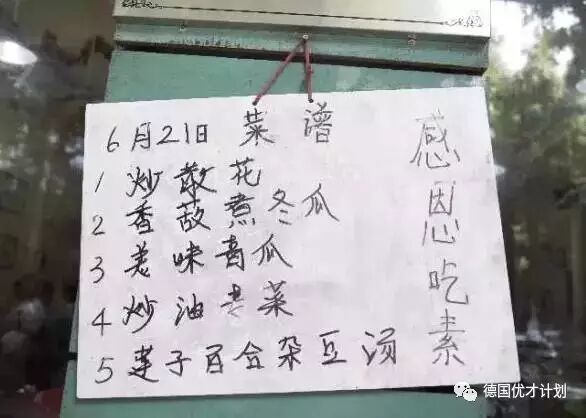 6月21日 菜谱
1 炒散花
2 香菇煮冬瓜
3 美味青瓜
4 炒油麦菜
5 莲子百合杂豆汤
感恩吃素
德国优才计划